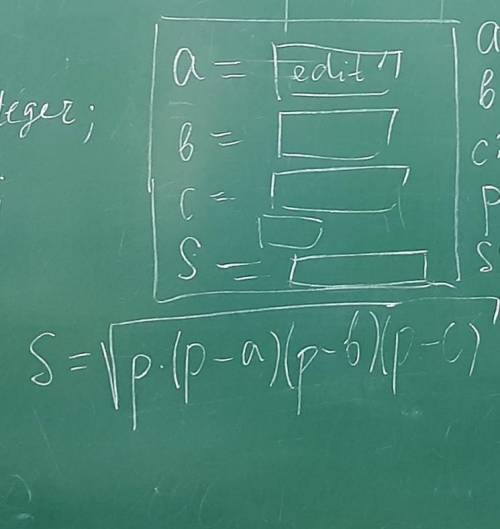 nteger;
a = edit 1
b =
c =
S =
a
b
c:
p
S
S = √p·(p-a)(p-b)(p-c)